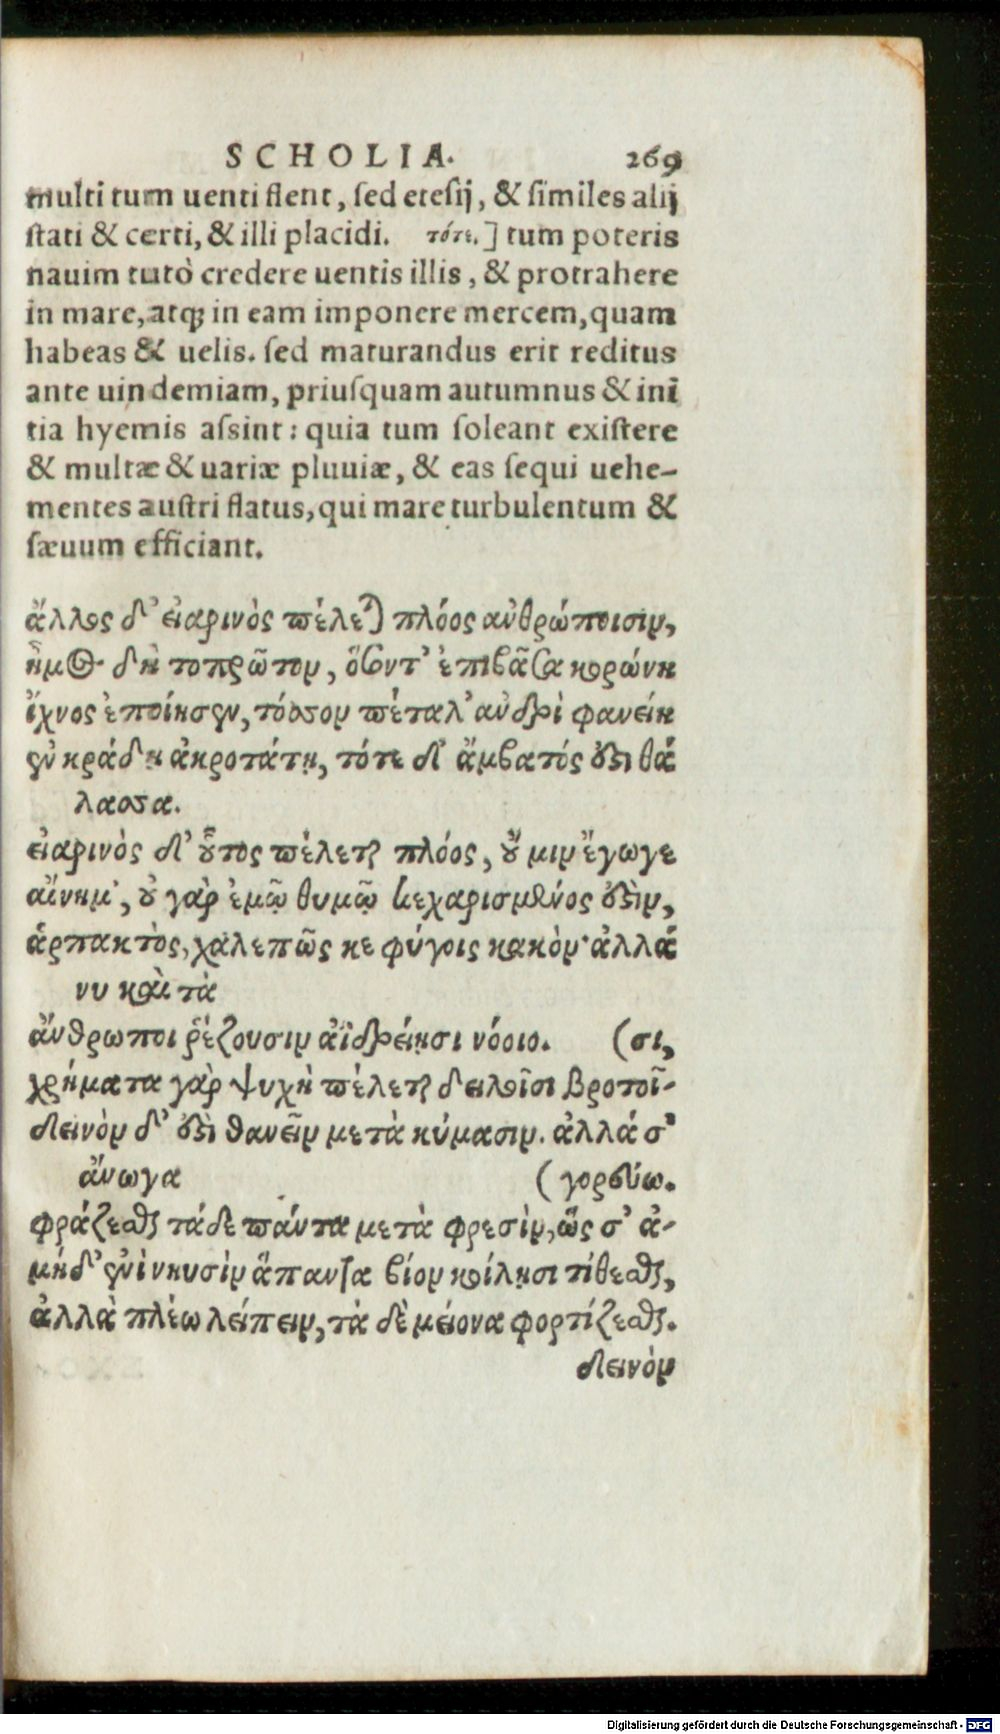 SCHOLIA. 269
multi tum uenti flent, sed etesij, & similes alij
stati & certi, & illi placidi. τότε.] tum poteris
nauim tutò credere uentis illis, & protrahere
in mare, atq; in eam imponere mercem, quam
habeas & uelis. sed maturandus erit reditus
ante uindemiam, priusquam autumnus & ini
tia hyemis assint: quia tum soleant existere
& multæ & uariæ pluuiæ, & eas sequi uehe-
mentes austri flatus, qui mare turbulentum &
sæuum efficiant.
ἄλλος δ' εἰαρινὸς πέλεται πλόος ἀνθρώποισιν,
ἦμος δὴ τοπρῶτον, ὅσοντ' ἐπιβᾶσα κορώνη
ἴχνος ἐποίησεν, τόσσον πέταλ' ἀνδρὶ φανείη
ἐν κράδῃ ἀκροτάτῃ, τότε δ' ἄμβατός ἐστι θά
λασσα.
εἰαρινὸς δ' οὗτος πέλεται πλόος, οὔ μιν ἔγωγε
αἴνημ', οὐ γὰρ ἐμῷ θυμῷ κεχαρισμένος ἐστὶν,
ἁρπακτὸς, χαλεπῶς κε φύγοις κακόν· ἀλλά
νυ καὶ τὰ
ἄνθρωποι ῥέζουσιν ἀϊδρείῃσι νόοιο. (σι,
χρήματα γὰρ ψυχὴ πέλεται δειλοῖσι βροτοῖ-
δεινὸν δ' ἐστὶ θανεῖν μετὰ κύμασιν. ἀλλά σ'
ἄνωγα (γορεύω.
φράζεσθαι τάδε πάντα μετὰ φρεσὶν, ὥς σ' ἀ-
μηδ' ἐνὶ νηυσὶν ἅπαντα βίον κοίλῃσι τίθεσθαι,
ἀλλὰ πλέω λείπειν, τὰ δὲ μείονα φορτίζεσθαι.
δεινὸν
Digitalisierung gefördert durch die Deutsche Forschungsgemeinschaft - DFG